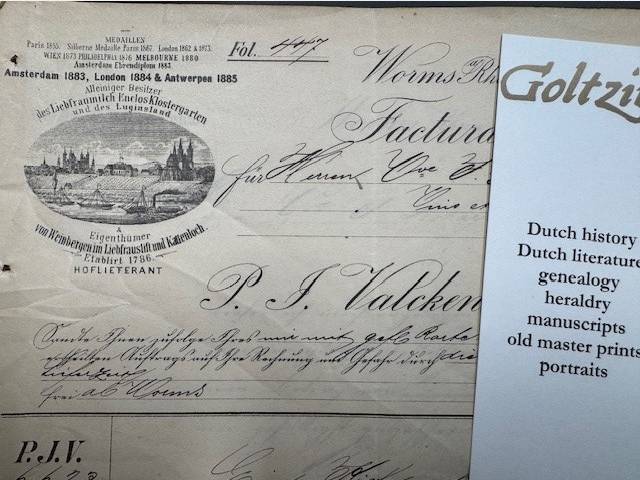 MEDAILLEN
Paris 1855. Silberne Medaille Paris 1867. London 1862 & 1873.
WIEN 1873 PHILADELPHIA 1876 MELBOURNE 1880
Amsterdam Ehrendiplom 1883.
Amsterdam 1883, London 1884 & Antwerpen 1885
Alleiniger Besitzer
des Liebfraumilch Enclos Klostergarten
und des Luginsland
&
Eigenthümer
von Weinbergen im Liebfraustift und Katterloch.
Etablirt 1786.
HOFLIEFERANT
Fol. 447
Worms Rh
Factura
für Herren
P. J. Valcken
Sandte Ihnen zufolge Ihres
ertheilten Auftrags auf Ihre Rechnung und Gefahr durch die
frei ab Worms
P.J.V.
Goltzi
Dutch history
Dutch literature
genealogy
heraldry
manuscripts
old master prints
portraits